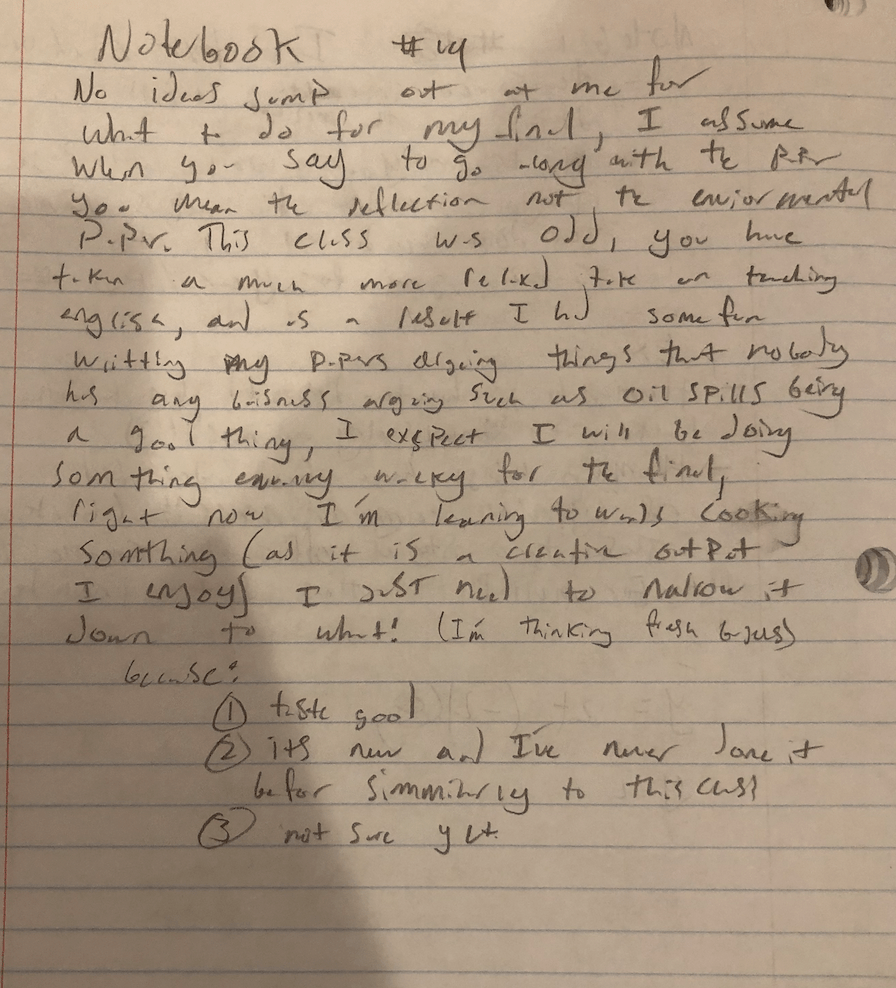 Notebook #14
No ideas jump out at me for
what to do for my final, I assume
when you say to go along with the
you mean the reflection not the enviormental
paper. This class was odd, you have
taken a much more relaxed take on teaching
english, and as a result I had some fun
writting my papers argeing things that nobody
has any buisness argeing such as oil spills being
a good thing, I exspect I will be doing
somthing equally wacky for the final,
right now I'm leaning towards cooking
somthing (as it is a creative output
I enjoy) I just need to narrow it
down to what! (I'm thinking fresh)
because:
① taste good
② its new and I've never done it
befor simmilarly to this class
③ not sure yet.